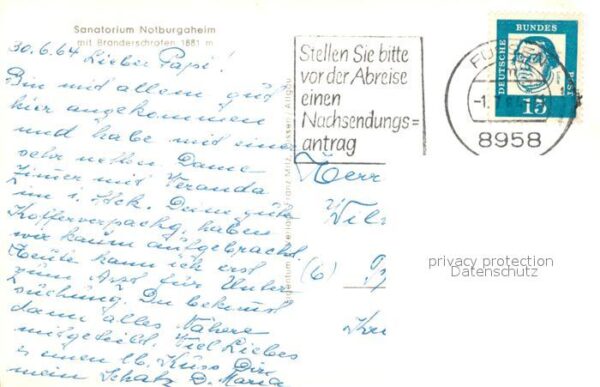 Sanatorium Notburgaheim
mit Branderschrofen 1881 m
30.6.64 Lieber Papi!
Bin mit allem gut
hier angekommen
und habe mit einer
sehr netten Dame
Zimer mit Veranda
im 1. Stck. Deine gute
Kofferverpackg. haben
wir kaum aufgebracht.
Heute kann ich erst
zum Arzt für Unter
suchung. Du bekomst
dann alles Nähere
mitgeteilt. Viel Liebes
u. einen lb. Kuss Dir
mein Schatz D. Maria
Franz Milz, Füssen, Allgäu
Stellen Sie bitte
vor der Abreise
einen
Nachsendungs=
antrag
DEUTSCHE
BUNDES
POST
15
8958
Herrn
(6)
privacy protection
Datenschutz